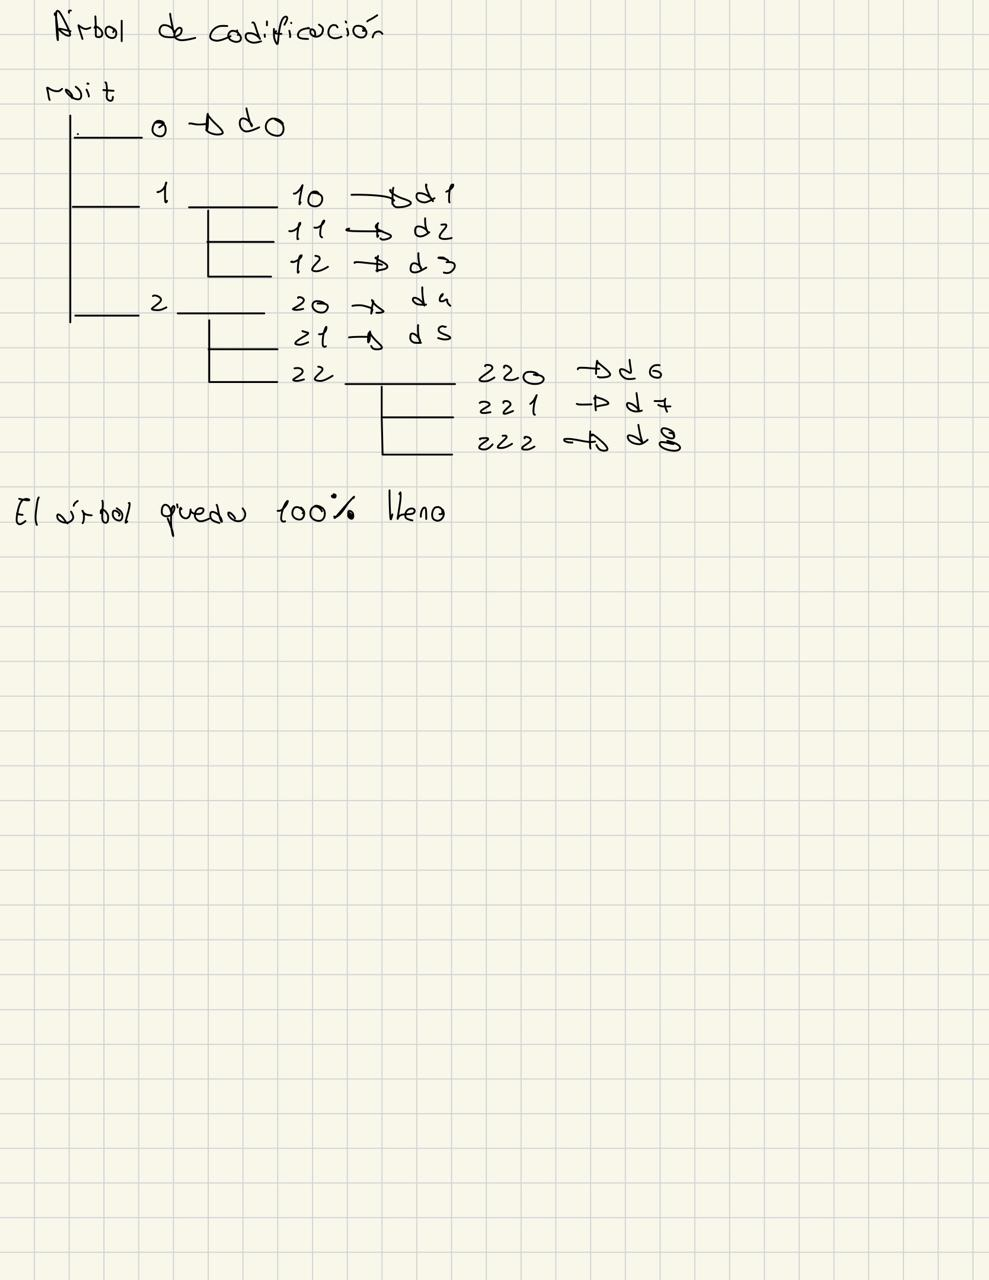 Árbol de codificación
rait
0 → d0
1 10 → d1
11 → d2
12 → d3
2 20 → d4
21 → d5
22 220 → d6
221 → d7
222 → d8
El árbol queda 100% lleno